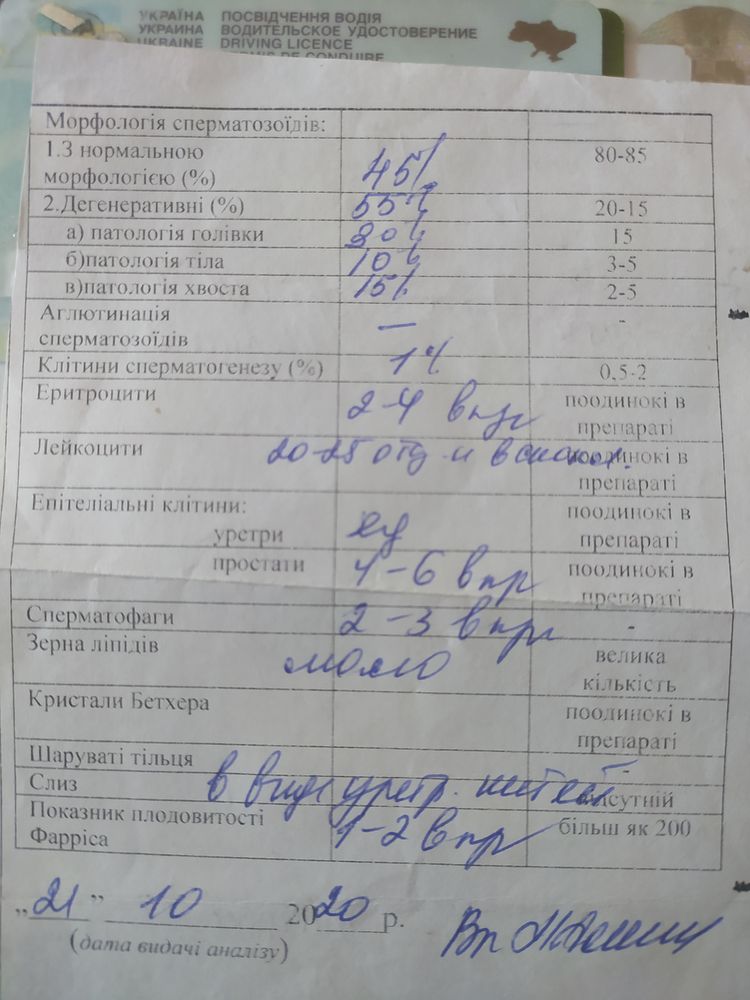 УКРАЇНА ПОСВІДЧЕННЯ ВОДІЯ
УКРАИНА ВОДИТЕЛЬСКОЕ УДОСТОВЕРЕНИЕ
UKRAINE DRIVING LICENCE
DE CONDUIRE
Морфологія сперматозоїдів:
1.З нормальною морфологією (%) 45% 80-85
2.Дегенеративні (%) 55% 20-15
а) патологія голівки 30% 15
б)патологія тіла 10% 3-5
в)патологія хвоста 15% 2-5
Аглютинація сперматозоїдів — -
Клітини сперматогенезу (%) 1% 0,5-2
Еритроцити 2-4 в п/з поодинокі в препараті
Лейкоцити 20-25 отд. и в скопл. поодинокі в препараті
Епітеліальні клітини:
уретри ед поодинокі в препараті
простати 4-6 в пр поодинокі в препараті
Сперматофаги 2-3 в пр -
Зерна ліпідів мало велика кількість
Кристали Бетхера поодинокі в препараті
Шаруваті тільця -
Слиз в виде уретр. нитей відсутній
Показник плодовитості Фарріса 1-2 в пр більш як 200
„21” 10 2020 р.
(дата видачі аналізу)